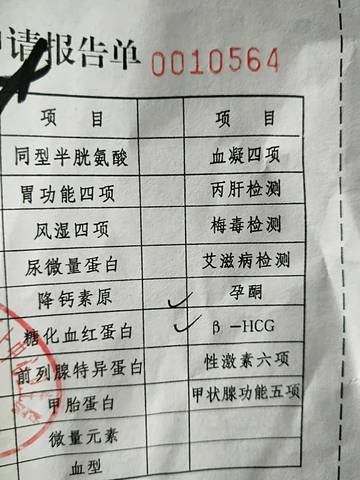 申请报告单 0010564
项 目 项 目
同型半胱氨酸 血凝四项
胃功能四项 丙肝检测
风湿四项 梅毒检测
尿微量蛋白 艾滋病检测
降钙素原 ✓ 孕酮
糖化血红蛋白 ✓ β-HCG
前列腺特异蛋白 性激素六项
甲胎蛋白 甲状腺功能五项
微量元素
血型